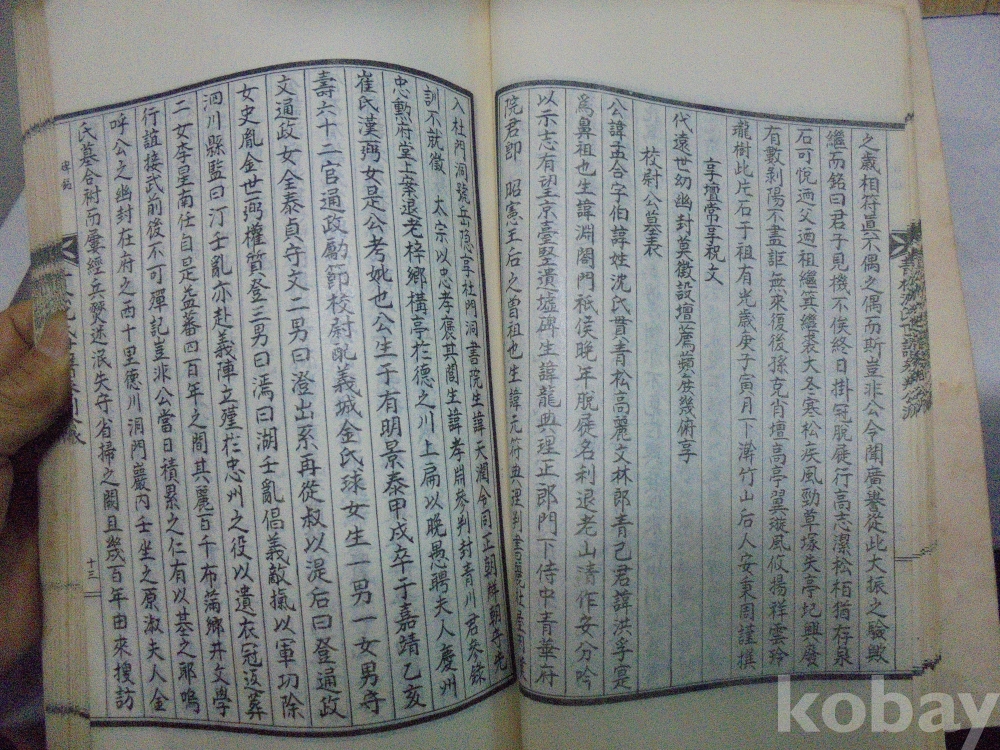 之歲相符直不偶之偶而斯豈非公令聞廣譽從此大振之驗歟
繼而銘曰君子見機不俟終日掛冠脫屣行高志潔松栢猶存泉
石可悅適父適祖繼其繼裘大冬寒松疾風勁草塚失亭圮興廢
有數剝陽不盡詎無來復後孫克肖壇高亭翼璇風攸揚祥雲玲
瓏樹此片石于祖有光歲庚子寅月下澣竹山后人安秉周謹撰
享壇常享祝文
代遠世幼幽封莫徵設壇薦蘋庶幾俯享
校尉公墓表
公諱孟合字伯諱姓沈氏貫青松高麗文林郎青己君諱洪孚寔
爲鼻祖也生諱淵閤門祗侯晚年脫屣名利退老山淸作安分吟
以示志有望京臺竪遺墟碑生諱龍典理正郎門下侍中青華府
院君卽 昭憲王后之曾祖也生諱元符典理判書
入杜門洞號岳隱享杜門洞書院生諱天潤令同正朝
訓不就徵 太宗以忠孝褒其閭生諱孝淵參判封青川君參錄
忠勲府堂上案退老梓鄉構亭於德之川上扁以晚愚聘夫人慶州
崔氏漢弼女是公考妣也公生于有明景泰甲戌卒于嘉靖乙亥
壽六十二官通政勵節校尉配義城金氏球女生一男一女男守
文通政女全泰貞守文二男曰澄出系再從叔以湜后曰登通政
女史胤金世弼權質登三男曰潙曰湖壬亂倡義敵愾以軍功除
泗川縣監曰汀壬亂亦赴義陣立殣於忠州之役以遺衣冠返葬
二女李星南任自是益蕃四百年之間其麗百千布滿鄉井文學
行誼接武前後不可殫記豈非公當日積累之仁有以基之耶嗚
呼公之幽封在府之西十里德川洞門巖內壬坐之原淑夫人金
氏墓合祔而屢經兵燹迷泯失守省掃之闕且幾百年由來搜訪
碑銘
十三
kobay